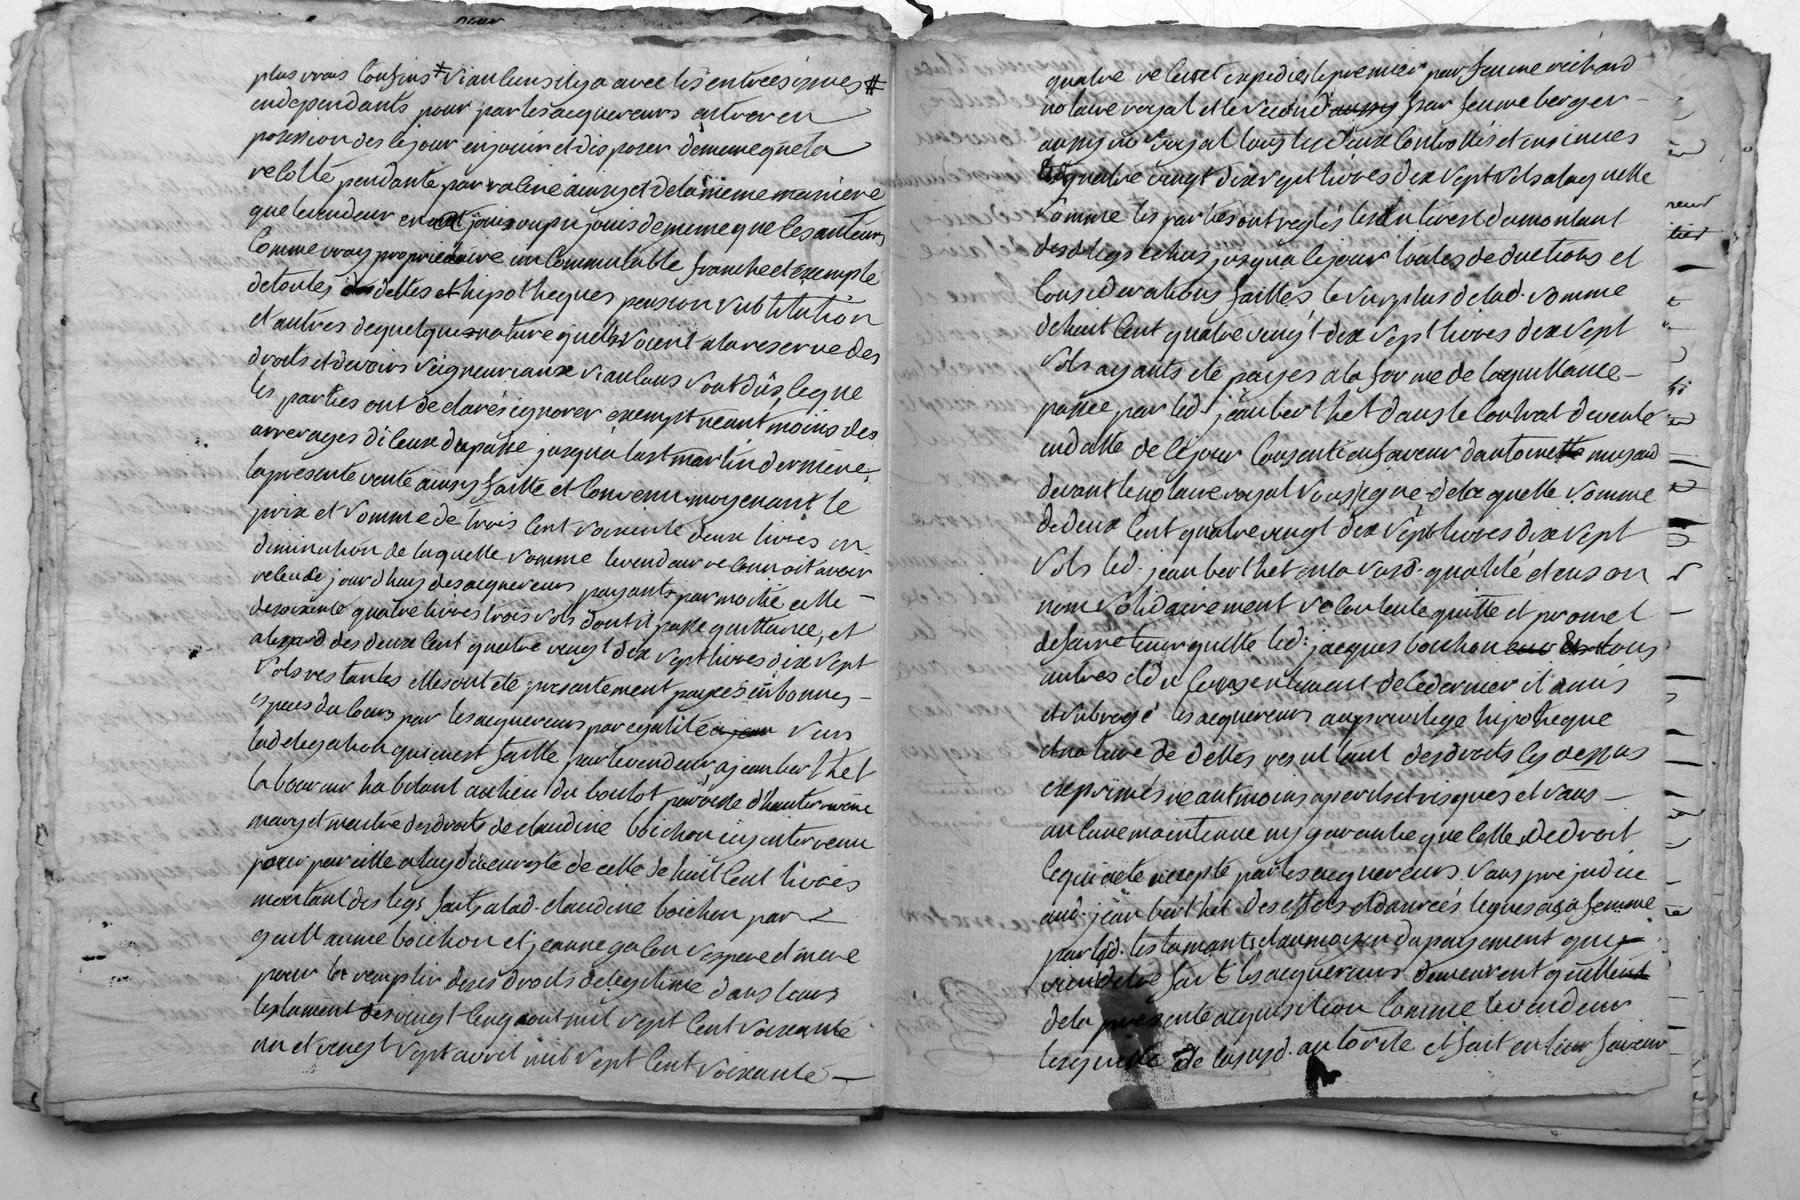 plus vrais confins # si aulcuns il y a avec les entrées issues #
independants pour par les acquereurs entrer en
possession des le jour en jouir et disposer de meme que la
recolte pendante par racine ainsy et de la meme maniere
que le vendeur en a jouis ou pu jouir de meme que ses auteurs
comme vray proprietaire incommutable franche et exempte
de toutes dettes et hipotheques pension substitution
et autres de quelque nature quelle soient a la reserve des
droits et devoirs seigneuriaux si aulcuns sont dûs, le que
les parties ont declarés ignorer exempt neantmoins des
arrerages diceux du passé jusqua la st martin derniere,
la presente vente ainsy faitte et convenu moyenant le
prix et somme de trois cent soixante deux livres en
diminution de laquelle somme le vendeur reconnoit avoir
receu ce jourdhuy des acquereurs payants par moitié celle
de soixante quatre livres trois sols dont il passe quittance, et
a legard des deux cent quatre vingt dix sept livres dix sept
sols restantes elles ont été presentement payées en bonnes
especes du cours par les acquereurs par egalité sur
la delegation qui en est faitte par le vendeur a jean berthet
laboureur habitant au lieu du boulot paroisse d'hauterivoire
mary et maitre des droits de claudine boichon icy intervenu
pour pareille a luy due en reste de celle de huit cent livres
montant des legs faits a lad. claudine boichon par
guillaume boichon et jeanne galon ses pere et mere
pour la remplir de ses droits de legitime dans leurs
testament des vingt cinq aout mil sept cent soixante
un et vingt sept avril mil sept cent soixante
quatre receus et expediés le premier par feu me richard
notaire royal et le second par feu me berger
aussy nre royal tous les deux controllés et insinués
quatre vingt dix sept livres dix sept sols a laquelle
somme les parties ont reglés les interest du montant
des legs echus jusqua le jour toutes deductions et
considerations faittes le surplus de lad. somme
de huit cent quatre vingt dix sept livres dix sept
sols ayants été payés a la forme de la quittance
passée par led. jean berthet dans le contrat de vente
en datte de ce jour consenti en faveur dantoine musard
devant le notaire royal soussigné de laquelle somme
de deux cent quatre vingt dix sept livres dix sept
sols led. jean berthet en la susd. qualité et en son
nom solidairement se contente quitte et promet
de faire tenir quitte led. jacques boichon tous
autres et du consentement de ce dernier il a mis
et subrogé les acquereurs au privilege hipotheque
et nature de dettes resultant des droits cy dessus
exprimés neantmoins a perils et risques et sans
aulcune maintenue ny garantie que celle de droit
ce qui a été accepté par les acquereurs sans prejudice
aud. jean berthet des effets et danrées legués a sa femme
par lsd. testaments et au moyen du payement qui
vient detre fait les acquereurs demeurent quittes
de la presente acquisition comme le vendeur
les quitte de la susd. autorité et fait en leur faveur